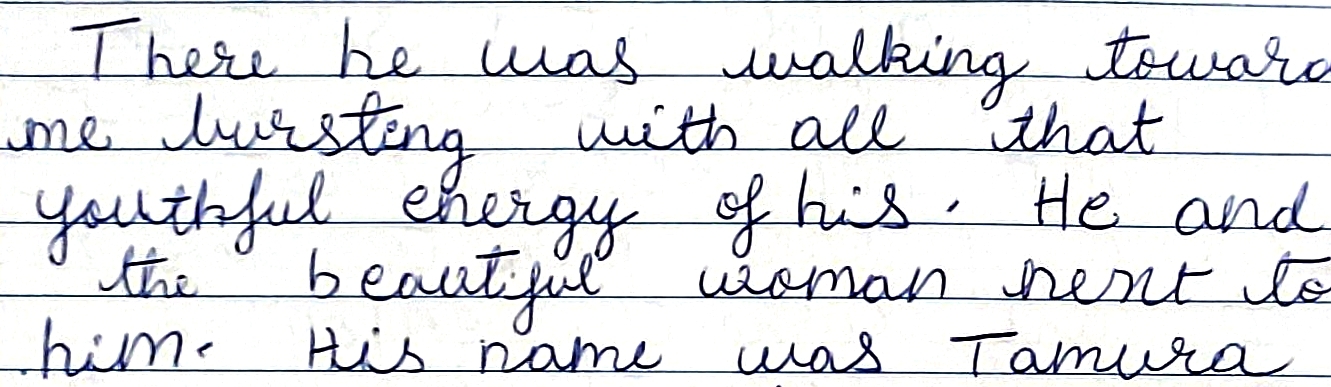 There he was walking toward
me bursting with all that
youthful energy of his. He and
the beautiful woman next to
him. His name was Tamura